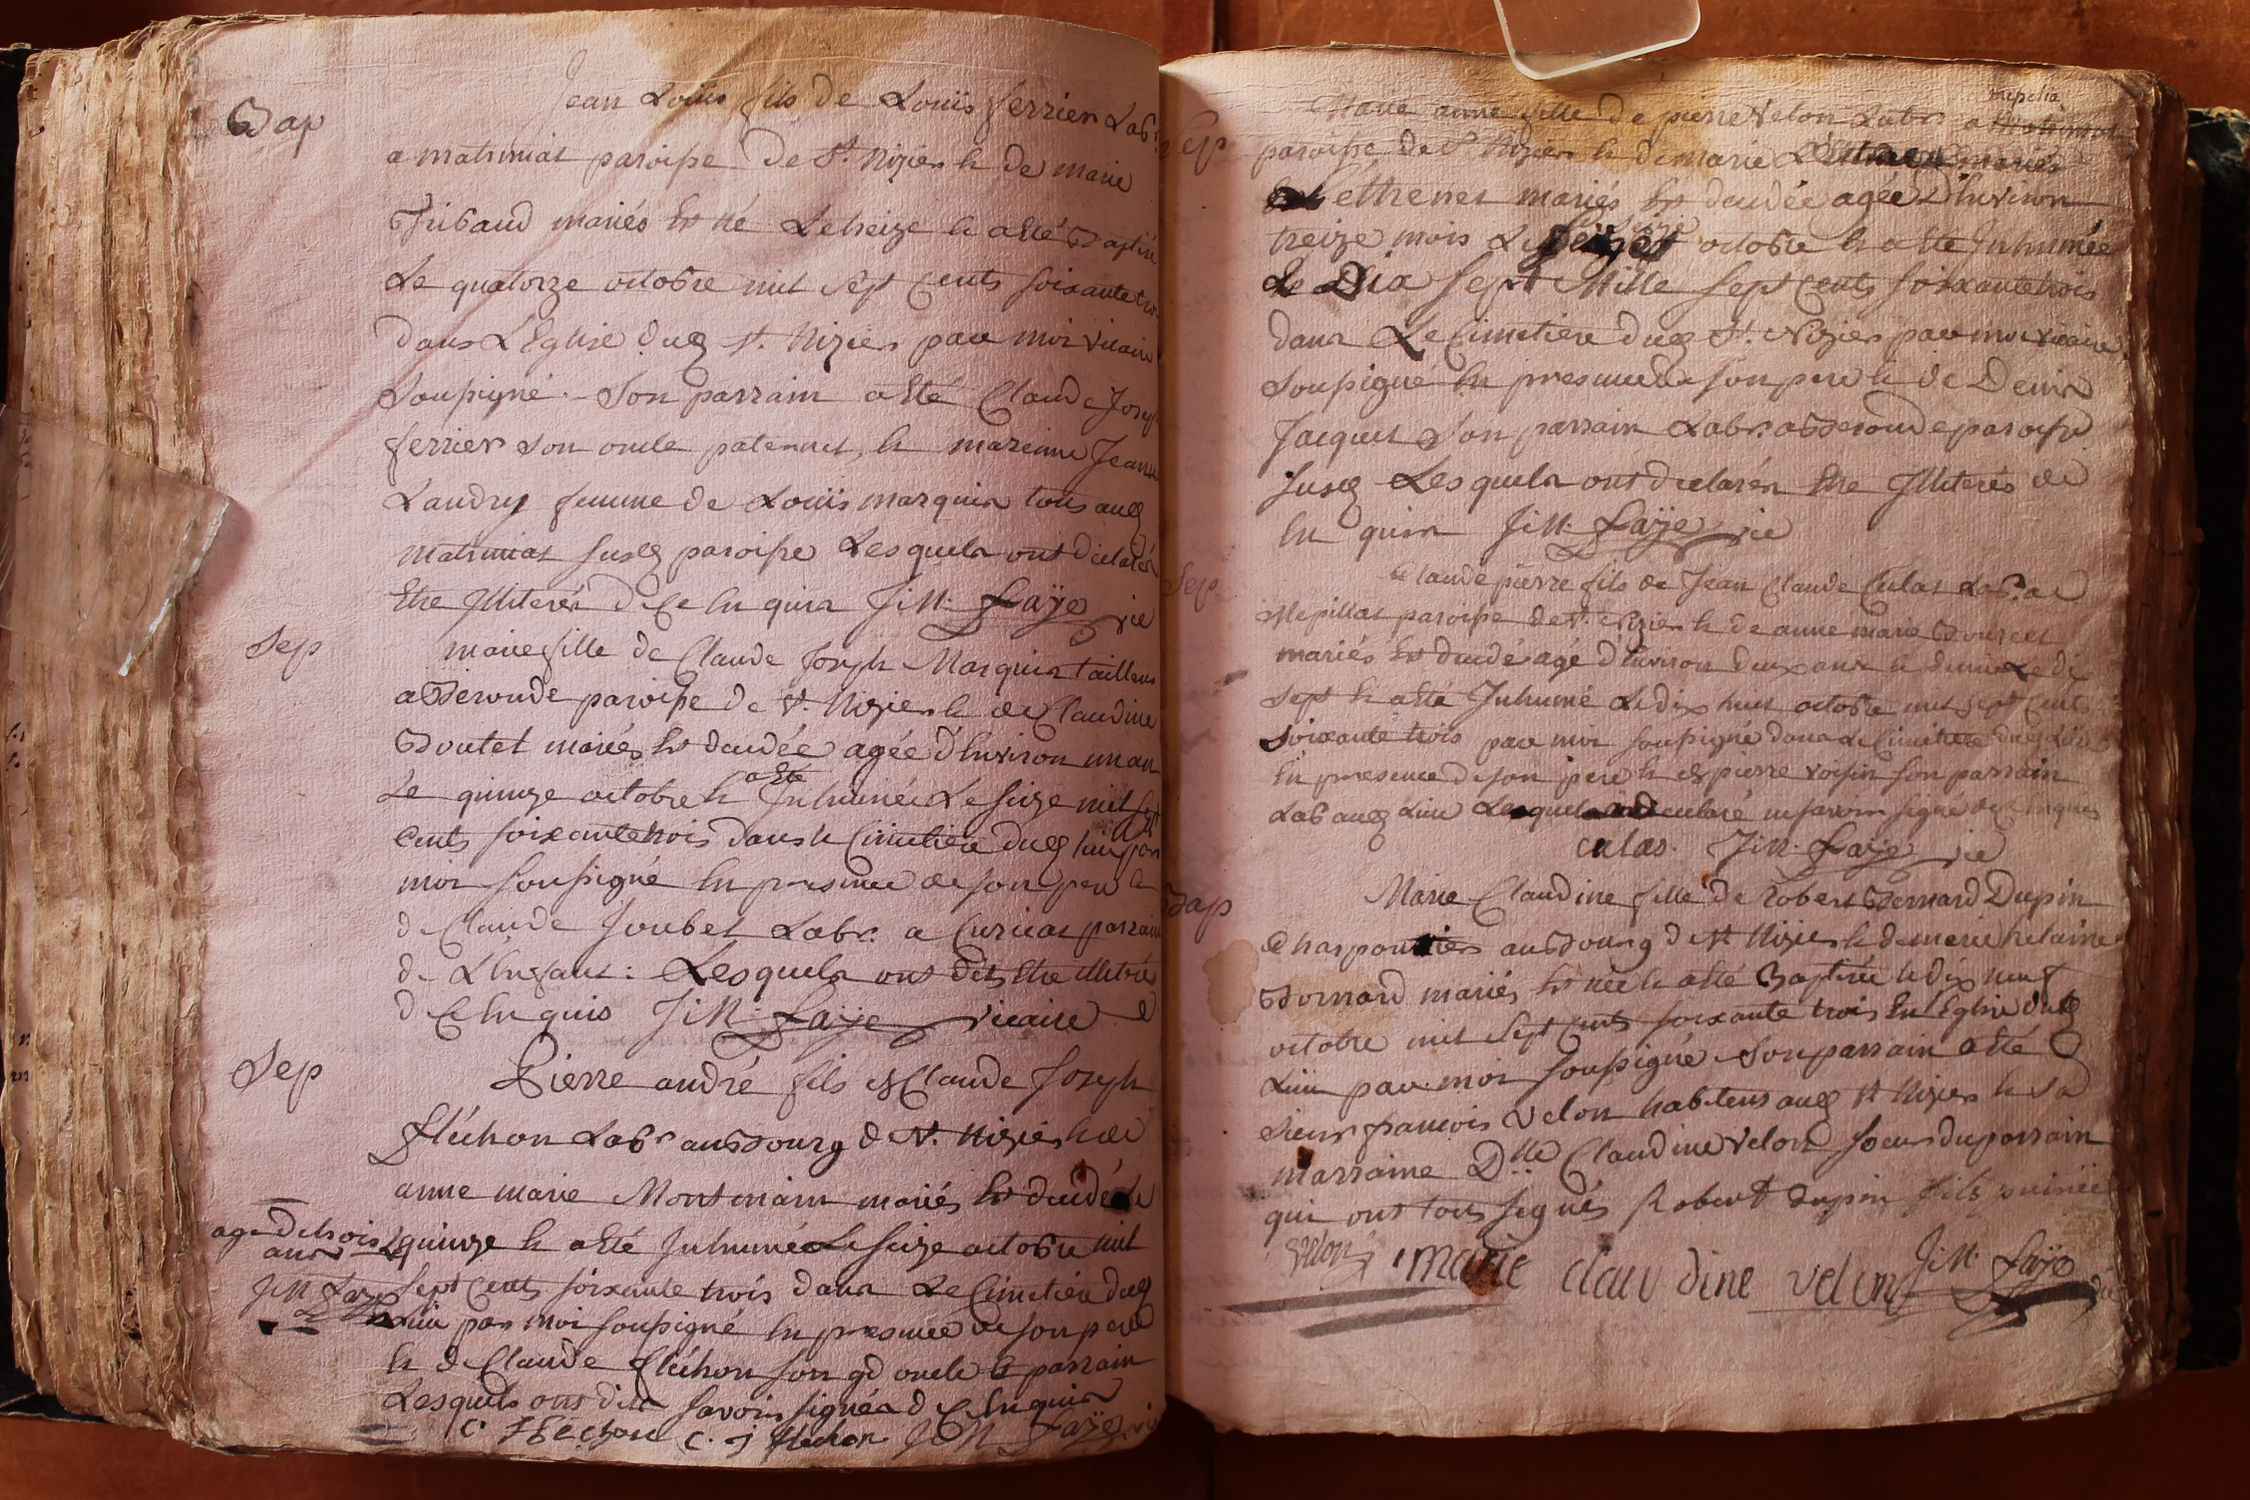 Bap
Jean Loüis fils de Loüis ferrier Labr
a matrimiat paroisse de St. Nizier & de marie
Thibaud mariés Est né Le treize & a Eté Baptisé
Le quatorze octobre mil sept cents soixante trois
dans L'Eglise dud St. Nizier par moi vicaire
soussigné. Son parrain a Eté Claude Joseph
ferrier son oncle paternel, & mareinne Jeanne
Landry femme de Loüis marquis tous aud
matrimiat susd paroisse Lesquels ont declarés
Etre Illiterés de Ce Enquis J: M: Faÿe vic
Sep
marie fille de Claude Joseph Marquis tailleur
a Beronde paroisse de St. Nizier & de Claudine
Boutet mariés Est decedée agée d'Environ un an
Le quinze octobre & a Eté Inhumée Le seize mil sept
cents soixante trois dans le Cimetiere dud lieu par
moi soussigné En presence de son pere &
de Claude Joubet Labr. a Curciat parrain
de L'Enfant: Lesquels ont dits Etre illiterés
de Ce Enquis J: M: Faÿe vicaire
Sep
Pierre andré fils de Claude Joseph
fléchon Labr au Bourg de St. Nizier & de
anne marie Montmain mariés Est decedé Le
agé de trois ans
quinze & a Eté Inhumé Le seize octobre mil
J M Faÿe
sept Cents soixante trois dans Le Cimetiere dud
Lieu par moi soussigné En presence de son pere
& de Claude fléchon son gd oncle & parrain
Lesquels ont dits savoir signés de Ce Enquis
C. Flechon C. J flechon J M Faÿe vic
Sep
Marie anne fille de pierre Velon Labr a
mepilia
paroisse de St Nizier & de marie
ethenet mariés Est decedée agée d'Environ
treize mois Le seize octobre & a Eté Inhumée
Le Dix sept Mille sept Cents soixante trois
dans Le Cimetiere dud St. Nizier par moi vicaire
soussigné En presence de son pere & de Denis
Jacquet son parrain Labr. a Beronde paroisse
susd Lesquels ont declarés Etre Illiterés de
Enquis J: M: Faÿe vic
Sep
Claude pierre fils de Jean Claude Culas Labr. a
Mepillat paroisse de St. Nizier & de anne marie Bourcet
mariés Est decedé agé d'Environ deux ans & demi Le dix
sept & a Eté Inhumé Le dix huit octobre mil sept Cents
soixante trois par moi soussigné dans Le Cimetiere dud Lieu
En presence de son pere & de pierre voisin son parrain
Lab aud Lieu declaré savoir signé
culas. J: M: Faÿe vic
Bap
Marie Claudine fille de Robert Bernard Dupin
Charpontier au Bourg de St Nizier & de marie helaine
Bornard mariés Est née & a Eté Baptisée le dix neuf
octobre mil sept Cents soixante trois En L'Eglise dud
Lieu par moi soussigné Son parrain a Eté
sieur francois Velon habitens aud St Nizier & sa
marraine Dlle Claudine Velon soeur du parrain
qui ont tous signés Robert dupin fils
Velon marie clau dine velon J: M: Faÿe vic